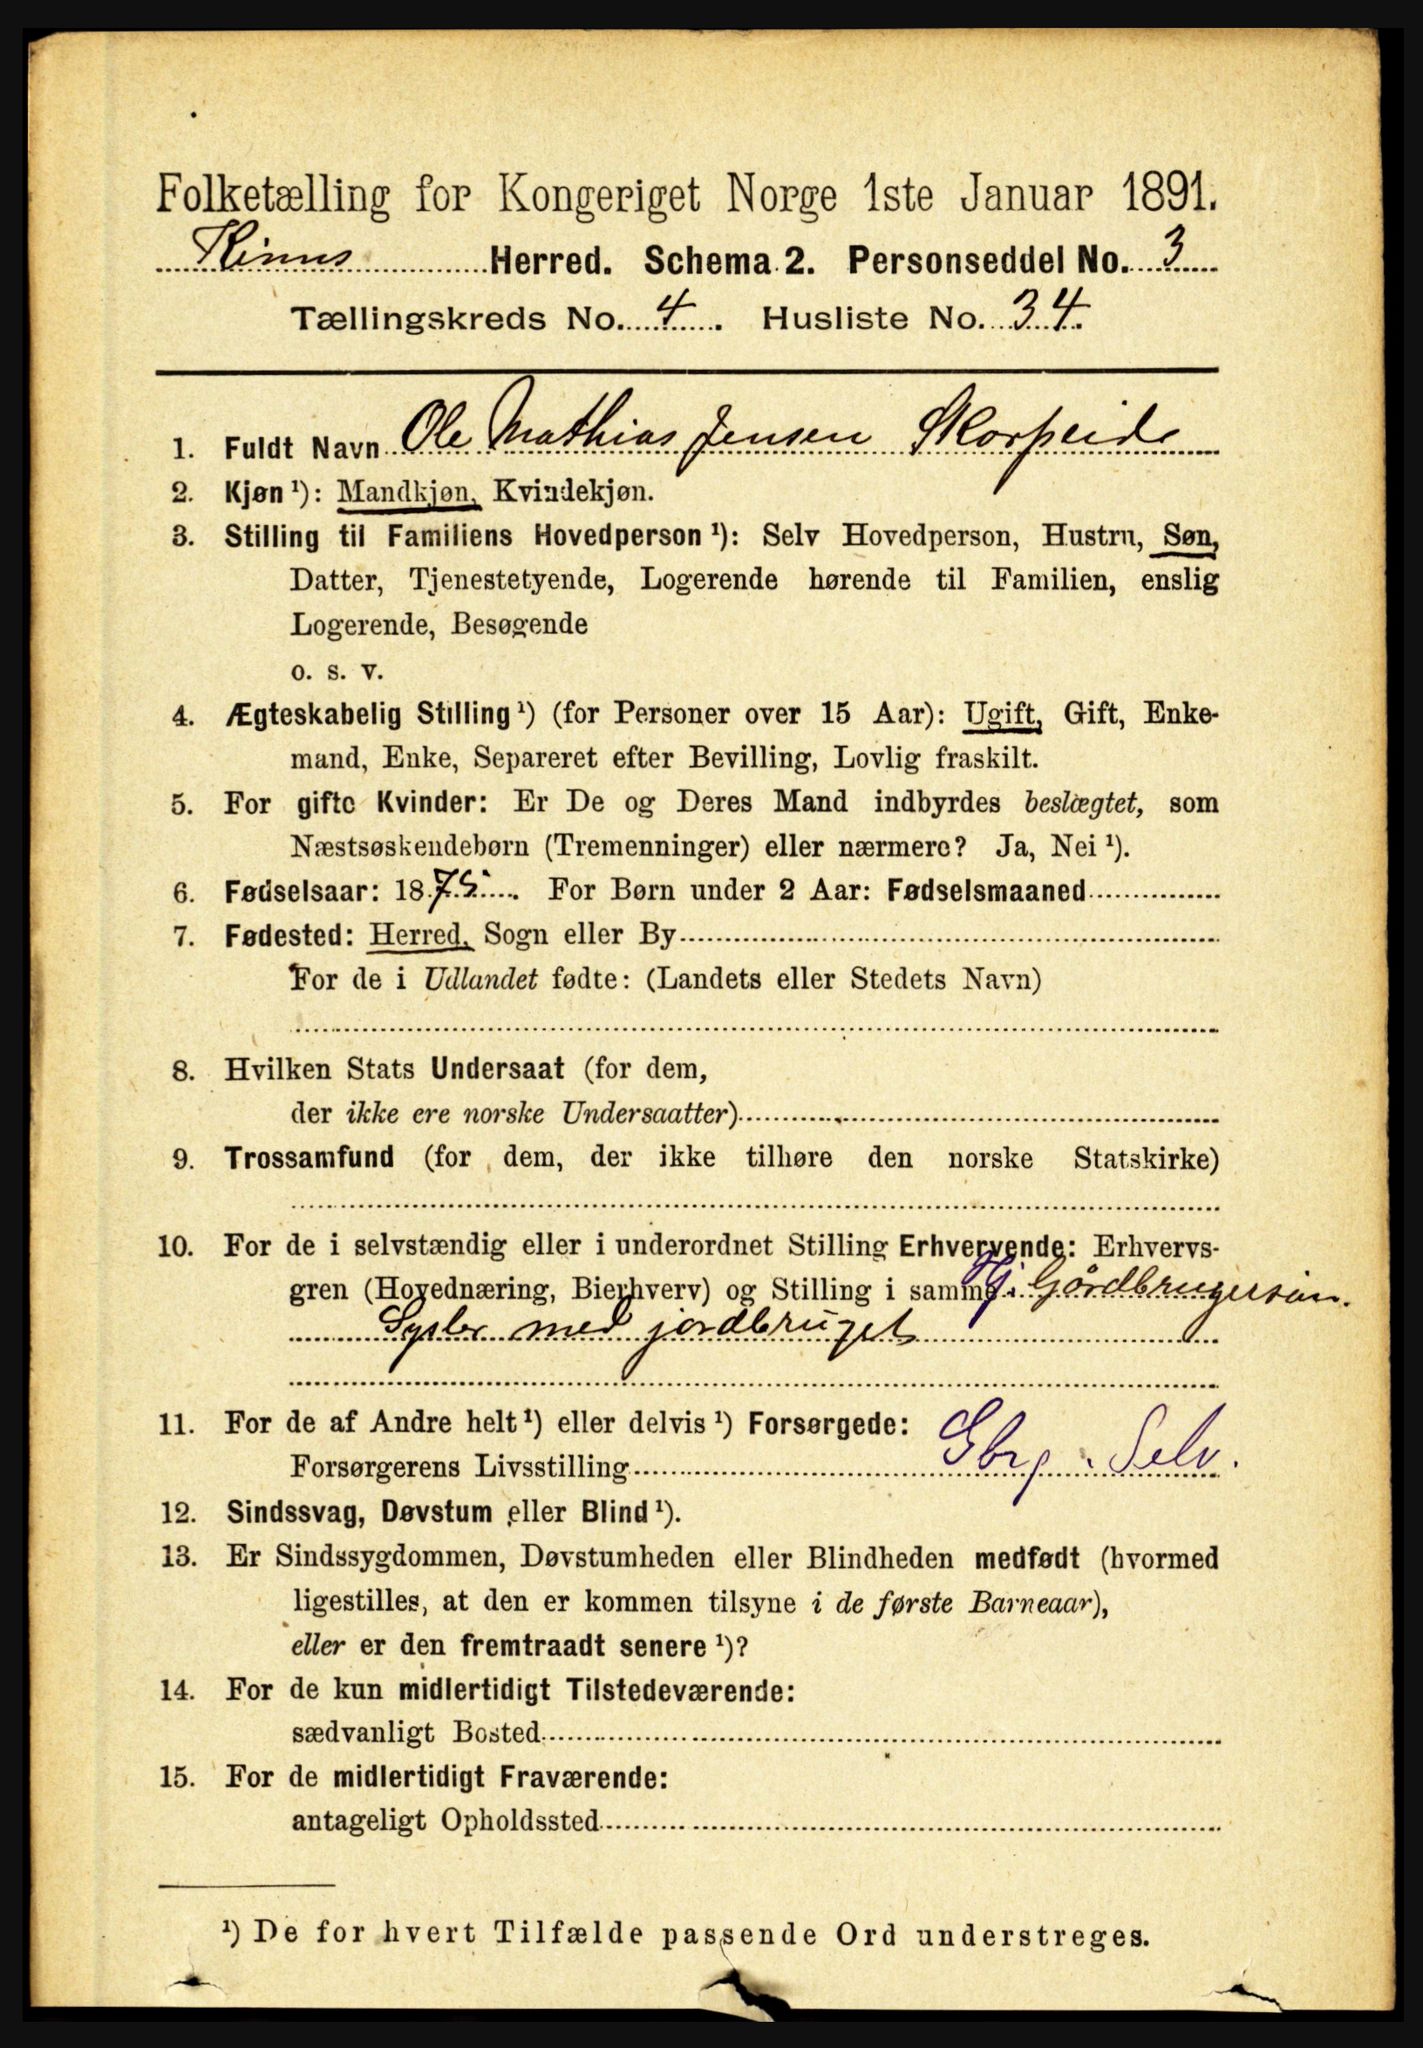 Folketælling for Kongeriget Norge 1ste Januar 1891.
Kinns Herred. Schema 2. Personseddel No. 3
Tællingskreds No. 4. Husliste No. 34.
1. Fuldt Navn Ole Mathias Jensen Skorpeide
2. Kjøn ¹): Mandkjøn, Kvindekjøn.
3. Stilling til Familiens Hovedperson ¹): Selv Hovedperson, Hustru, Søn,
Datter, Tjenestetyende, Logerende hørende til Familien, enslig
Logerende, Besøgende
o. s. v.
4. Ægteskabelig Stilling ¹) (for Personer over 15 Aar): Ugift, Gift, Enke-
mand, Enke, Separeret efter Bevilling, Lovlig fraskilt.
5. For gifte Kvinder: Er De og Deres Mand indbyrdes beslægtet, som
Næstsøskendebørn (Tremenninger) eller nærmere? Ja, Nei ¹).
6. Fødselsaar: 1875. For Børn under 2 Aar: Fødselsmaaned
7. Fødested: Herred, Sogn eller By
For de i Udlandet fødte: (Landets eller Stedets Navn)
8. Hvilken Stats Undersaat (for dem,
der ikke ere norske Undersaatter)
9. Trossamfund (for dem, der ikke tilhøre den norske Statskirke)
10. For de i selvstændig eller i underordnet Stilling Erhvervende: Erhvervs-
gren (Hovednæring, Bierhverv) og Stilling i samme. Hj. Gårdbrugersøn.
Sysler med jordbruget
11. For de af Andre helt ¹) eller delvis ¹) Forsørgede:
Forsørgerens Livsstilling Gbrg. Selv.
12. Sindssvag, Døvstum eller Blind ¹).
13. Er Sindssygdommen, Døvstumheden eller Blindheden medfødt (hvormed
ligestilles, at den er kommen tilsyne i de første Barneaar),
eller er den fremtraadt senere ¹)?
14. For de kun midlertidigt Tilstedeværende:
sædvanligt Bosted
15. For de midlertidigt Fraværende:
antageligt Opholdssted
¹) De for hvert Tilfælde passende Ord understreges.